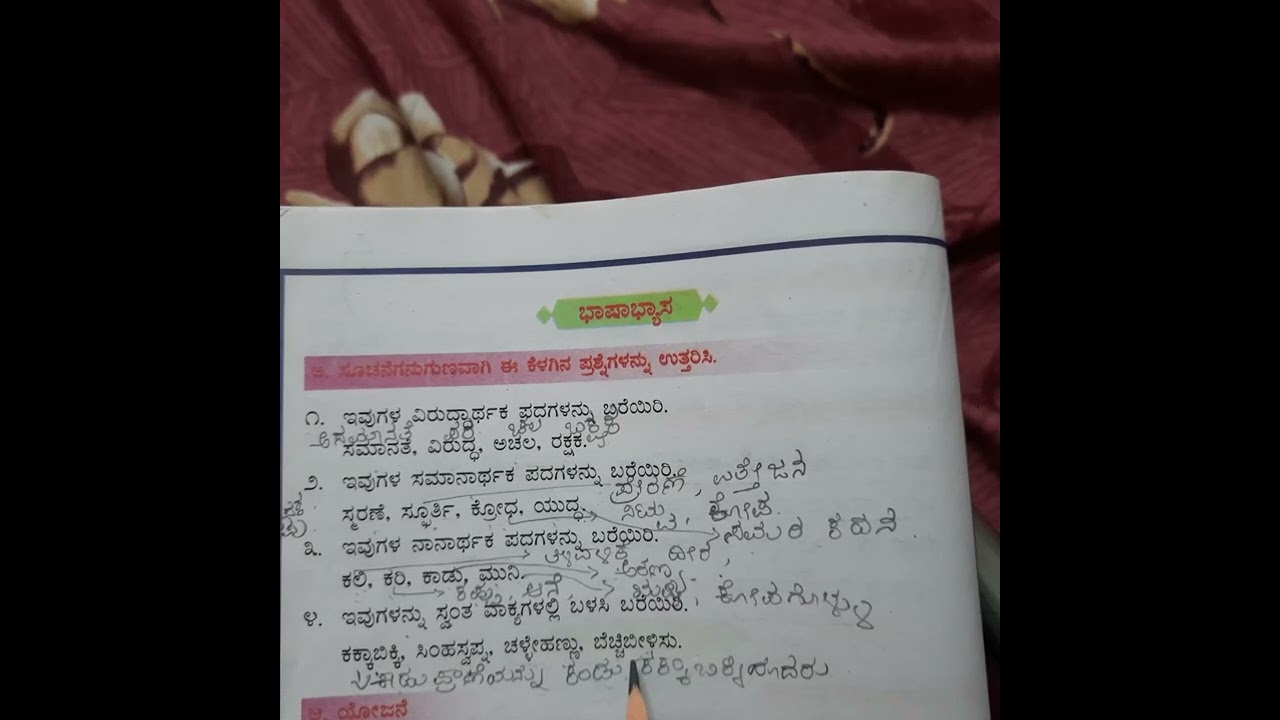 ಭಾಷಾಭ್ಯಾಸ
ಅ. ಸೂಚನೆಗನುಗುಣವಾಗಿ ಈ ಕೆಳಗಿನ ಪ್ರಶ್ನೆಗಳನ್ನು ಉತ್ತರಿಸಿ.
೧. ಇವುಗಳ ವಿರುದ್ಧಾರ್ಥಕ ಪದಗಳನ್ನು ಬರೆಯಿರಿ.
ಅಸಮಾನತೆ ಪರ ಚಲ ಭಕ್ಷಕ
ಸಮಾನತೆ, ವಿರುದ್ಧ, ಅಚಲ, ರಕ್ಷಕ.
೨. ಇವುಗಳ ಸಮಾನಾರ್ಥಕ ಪದಗಳನ್ನು ಬರೆಯಿರಿ.
ಪ್ರೇರಣೆ, ಉತ್ತೇಜನ
ಸ್ಮರಣೆ, ಸ್ಫೂರ್ತಿ, ಕ್ರೋಧ, ಯುದ್ಧ. ಸಿಟ್ಟು, ಕೋಪ.
೩. ಇವುಗಳ ನಾನಾರ್ಥಕ ಪದಗಳನ್ನು ಬರೆಯಿರಿ. ಸಮರ ಕದನ.
ಕಲಿ, ಕರಿ, ಕಾಡು, ಮುನಿ. ಅರಣ್ಯ
ಕಪ್ಪು, ಆನೆ, ಋಷಿ, ಕೋಪಗೊಳ್ಳು
೪. ಇವುಗಳನ್ನು ಸ್ವಂತ ವಾಕ್ಯಗಳಲ್ಲಿ ಬಳಸಿ ಬರೆಯಿರಿ.
ಕಕ್ಕಾಬಿಕ್ಕಿ, ಸಿಂಹಸ್ವಪ್ನ, ಚಳ್ಳೇಹಣ್ಣು, ಬೆಚ್ಚಿಬೀಳಿಸು.
ಕಾಡುಪ್ರಾಣಿಯನ್ನು ಕಂಡು
ಆ. ಯೋಜನೆ